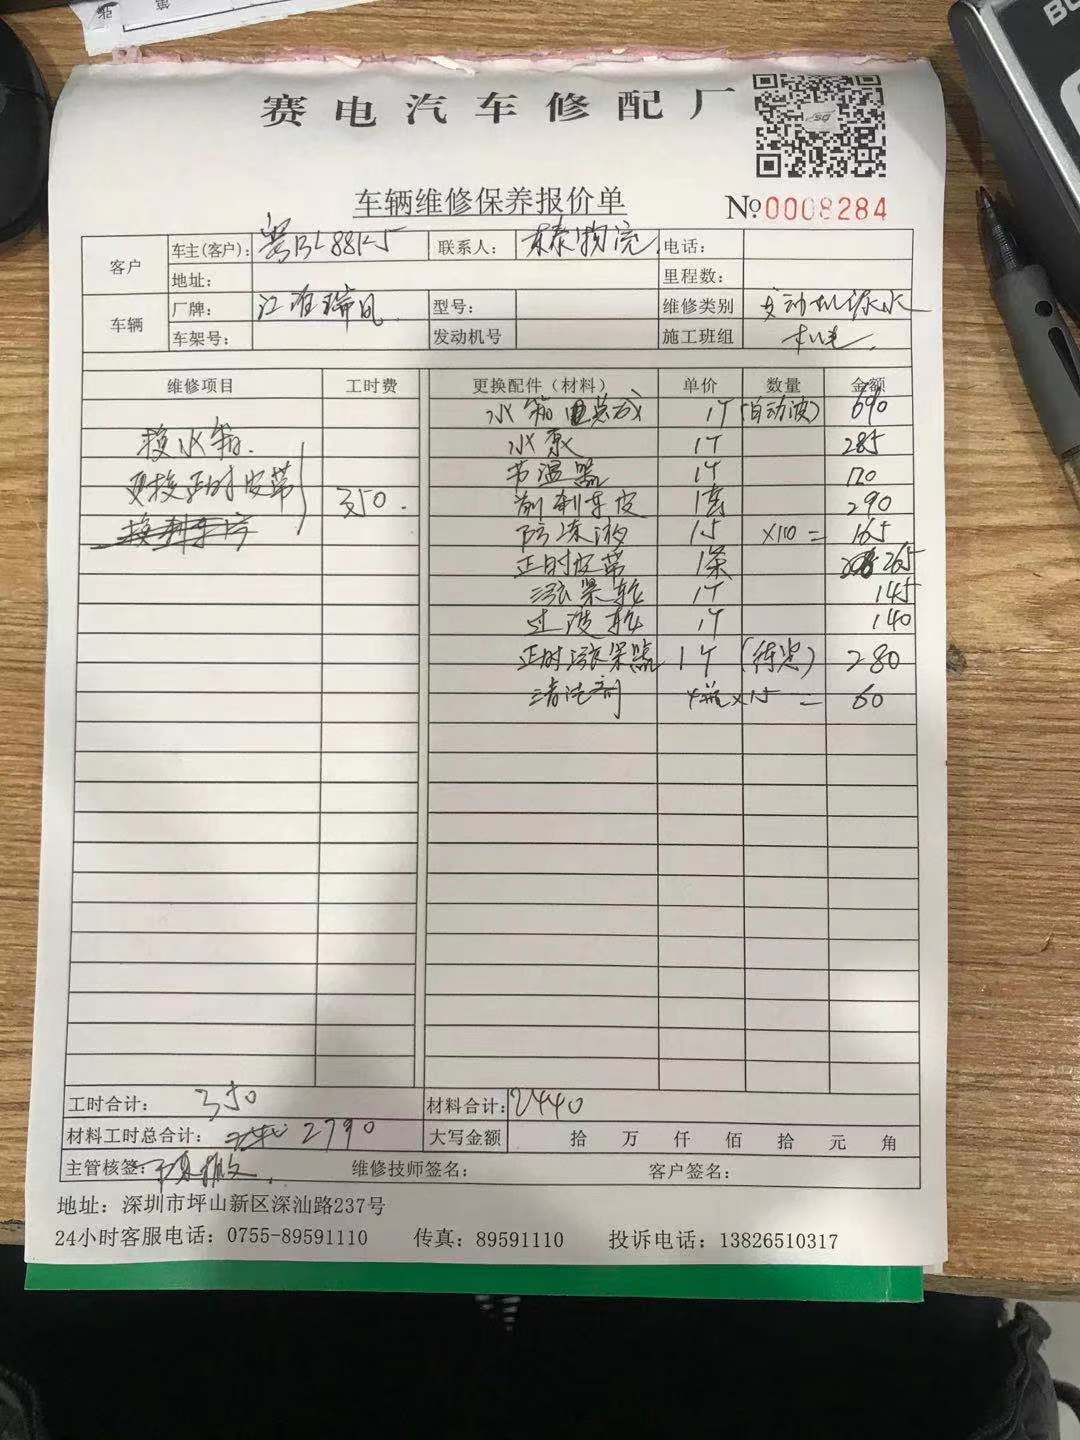 赛电汽车修配厂
车辆维修保养报价单
No 0008284
客户 车主(客户): 粤BL88K5 联系人: 物流 电话:
地址: 里程数:
车辆 厂牌: 江淮瑞风 型号: 维修类别 发动机漏水
车架号: 发动机号 施工班组 机电
维修项目 工时费 更换配件（材料） 单价 数量 金额
水箱总成 1个 (自动波) 690
换水箱. 水泵 1个 285
节温器 1个 120
更换正时皮带 350. 前刹车皮 1套 290
换刹车片 防冻液 15 x110 = 165
正时皮带 1条 265
涨紧轮 1个 145
过渡轮 1个 140
正时涨紧器 1个 (待定) 280
清洁剂 4瓶x15 = 60
工时合计: 350 材料合计: 2440
材料工时总合计: 2790 大写金额 拾 万 仟 佰 拾 元 角
主管核签: 维修技师签名: 客户签名:
地址: 深圳市坪山新区深汕路237号
24小时客服电话: 0755-89591110 传真: 89591110 投诉电话: 13826510317